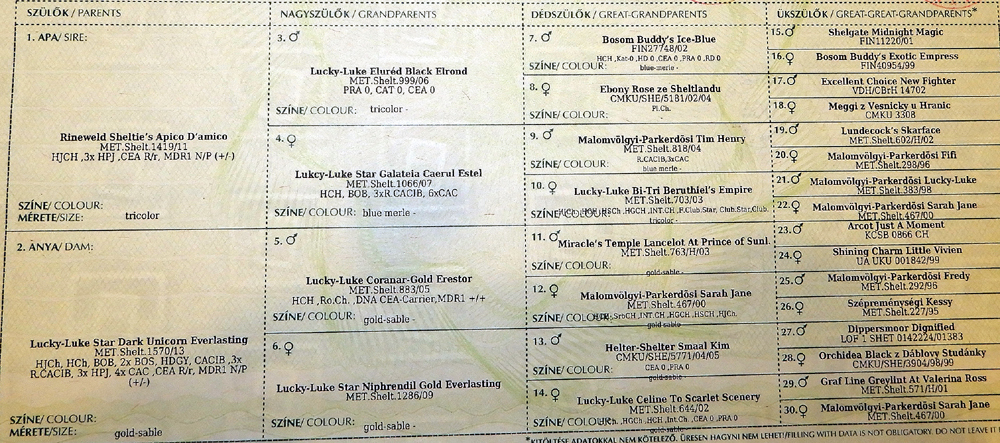 SZÜLŐK / PARENTS
1. APA/ SIRE:
Rineweld Sheltie's Apico D'amico
MET.Shelt.1419/11
HJCH ,3x HPJ ,CEA R/r, MDR1 N/P (+/-)
SZÍNE/ COLOUR:
MÉRETE/SIZE: tricolor
2. ANYA/ DAM:
Lucky-Luke Star Dark Unicorn Everlasting
MET.Shelt.1570/13
HJCh, HCh, BOB, 2x BOS, HDGY, CACIB ,3x
R.CACIB, 3x HPJ, 4x CAC ,CEA R/r, MDR1 N/P
(+/-)
SZÍNE/ COLOUR:
MÉRETE/SIZE: gold-sable
NAGYSZÜLŐK / GRANDPARENTS
3. ♂
Lucky-Luke Eluréd Black Elrond
MET.Shelt.999/06
PRA 0, CAT 0, CEA 0
SZÍNE/ COLOUR: tricolor -
4. ♀
Lukcy-Luke Star Galateia Caerul Estel
MET.Shelt.1066/07
HCH, BOB, 3xR.CACIB, 6xCAC
SZÍNE/ COLOUR: blue merle -
5. ♂
Lucky-Luke Coranar-Gold Erestor
MET.Shelt.883/05
HCH ,Ro.Ch. ,DNA CEA-Carrier,MDR1 +/+
SZÍNE/ COLOUR: gold-sable -
6. ♀
Lucky-Luke Star Niphrendil Gold Everlasting
MET.Shelt.1286/09
SZÍNE/ COLOUR: gold-sable -
DÉDSZÜLŐK / GREAT-GRANDPARENTS
7. ♂ Bosom Buddy's Ice-Blue
FIN27748/02
HCH ,Kat-0 ,HD 0 ,CEA 0 ,PRA 0 ,RD 0
SZÍNE/ COLOUR: blue-merle -
8. ♀ Ebony Rose ze Sheltlandu
CMKU/SHE/5181/02/04
SZÍNE/ COLOUR: Pl.Ch.
9. ♂ Malomvölgyi-Parkerdösi Tim Henry
MET.Shelt.818/04
R.CACIB,3xCAC
SZÍNE/ COLOUR: blue merle -
10. ♀ Lucky-Luke Bi-Tri Beruthiel's Empire
MET.Shelt.703/03
SZÍNE/ COLOUR: ,HSCH ,HGCH ,INT.CH ,F.Club.Star, Club.Star,Club.
tricolor -
11. ♂ Miracle's Temple Lancelot At Prince of Sunl.
MET.Shelt.763/H/03
SZÍNE/ COLOUR: gold-sable -
12. ♀ Malomvölgyi-Parkerdösi Sarah Jane
MET.Shelt.467/00
SZÍNE/ COLOUR: ,SrbCH ,INT.CH ,HGCH ,HSCH ,HJCh.
gold-sable -
13. ♂ Helter-Shelter Smaal Kim
CMKU/SHE/5771/04/05
CEA 0 ,PRA 0
SZÍNE/ COLOUR: gold-sable -
14. ♀ Lucky-Luke Celine To Scarlet Scenery
MET.Shelt.644/02
SZÍNE/ COLOUR: ,HGCh ,HCH ,Int.Ch ,CEA 0 ,PRA 0
gold-sable -
ÜKSZÜLŐK / GREAT-GREAT-GRANDPARENTS*
15. ♂ Shelgate Midnight Magic
FIN11220/01
16. ♀ Bosom Buddy's Exotic Empress
FIN40954/99
17. ♂ Excellent Choice New Fighter
VDH/CBrH 14702
18. ♀ Meggi z Vesnicky u Hranic
CMKU 3308
19. ♂ Lundecock's Skarface
MET.Shelt.602/H/02
20. ♀ Malomvölgyi-Parkerdösi Fifi
MET.Shelt.298/96
21. ♂ Malomvölgyi-Parkerdösi Lucky-Luke
MET.Shelt.383/98
22. ♀ Malomvölgyi-Parkerdösi Sarah Jane
MET.Shelt.467/00
23. ♂ Arcot Just A Moment
KCSB 0866 CH
24. ♀ Shining Charm Little Vivien
UA UKU 001842/99
25. ♂ Malomvölgyi-Parkerdösi Fredy
MET.Shelt.292/96
26. ♀ Szépreménységi Kessy
MET.Shelt.227/95
27. ♂ Dippersmoor Dignified
LOF 1 SHET 0142224/01383
28. ♀ Orchidea Black z Dáblovy Studánky
CMKU/SHE/3904/98/99
29. ♂ Graf Line Greylint At Valerina Ross
MET.Shelt.571/H/01
30. ♀ Malomvölgyi-Parkerdösi Sarah Jane
MET.Shelt.467/00
*KITÖLTÉSE ADATOKKAL NEM KÖTELEZŐ. ÜRESEN HAGYNI NEM LEHET!/FILLING WITH DATA IS NOT OBLIGATORY. DO NOT LEAVE IT